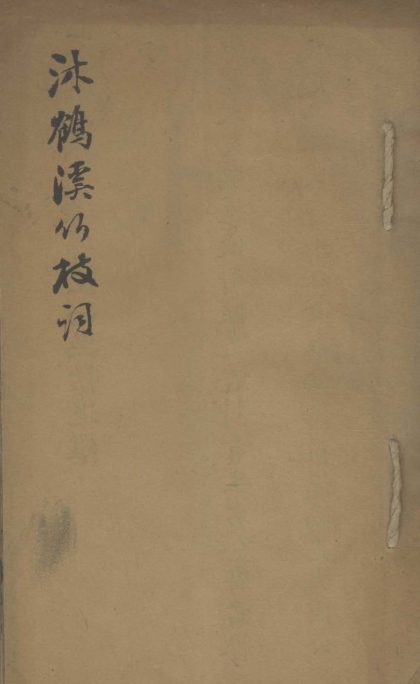 沐鶴溪竹枝詞